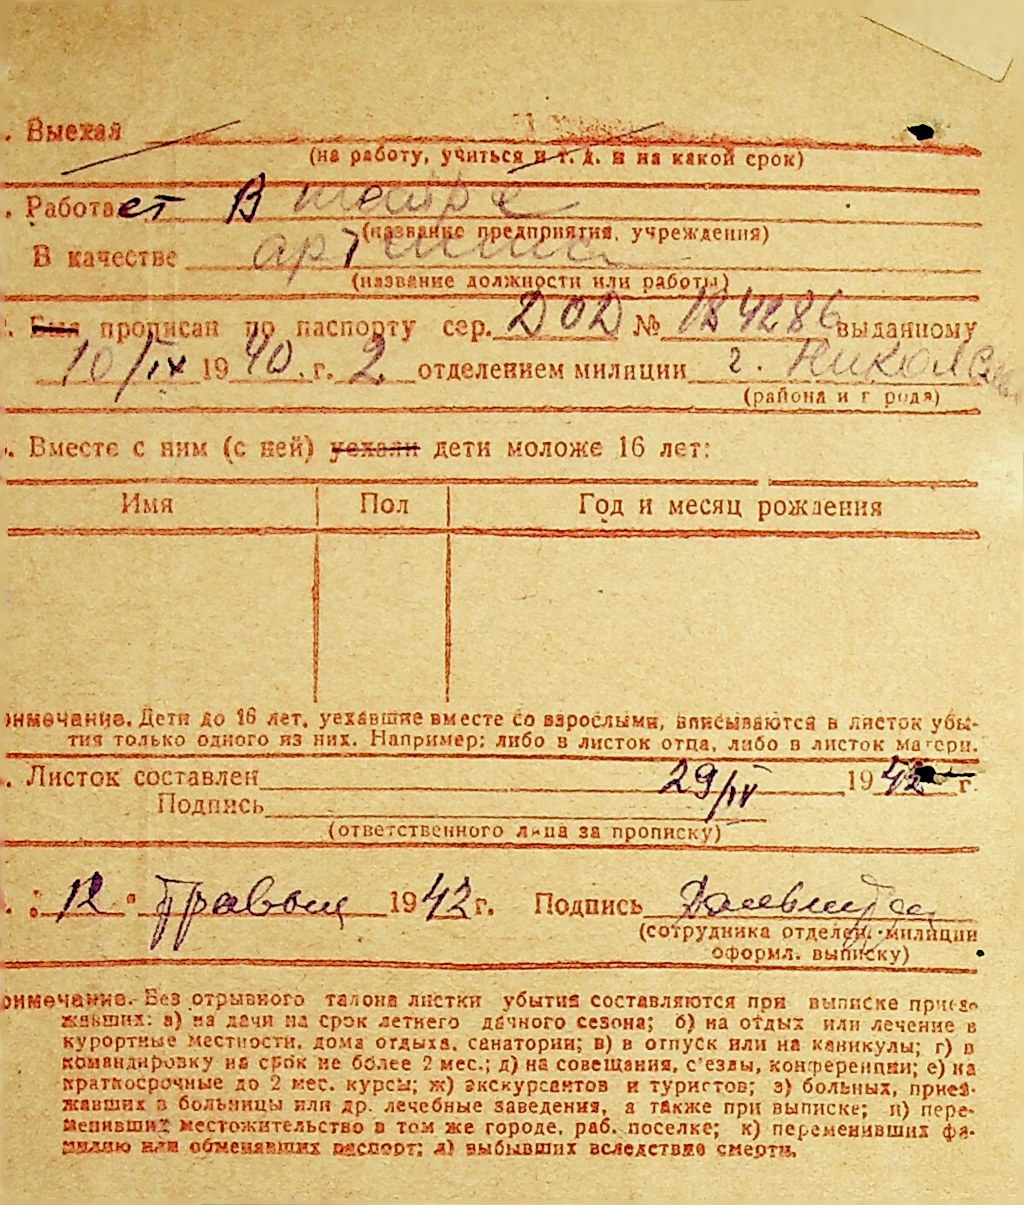 . Выехал
(на работу, учиться и т. д. и на какой срок)
. Работает В театре
(название предприятия, учреждения)
В качестве артиста
(название должности или работы)
. Был прописан по паспорту сер. ДОД № 184286 выданному
10/IX 1940 г. 2 отделением милиции г. Николаев
(района и города)
. Вместе с ним (с ней) уехали дети моложе 16 лет:
Имя Пол Год и месяц рождения
имечание. Дети до 16 лет, уехавшие вместе со взрослыми, вписываются в листок убы-
тия только одного из них. Например: либо в листок отца, либо в листок матери.
. Листок составлен 29/IV 1942 г.
Подпись
(ответственного лица за прописку)
. „12" травня 1942 г. Подпись
(сотрудника отделен. милиции
оформл. выписку)
имечание. Без отрывного талона листки убытия составляются при выписке приез-
жавших: а) на дачи на срок летнего дачного сезона; б) на отдых или лечение в
курортные местности, дома отдыха, санатории; в) в отпуск или на каникулы; г) в
командировку на срок не более 2 мес.; д) на совещания, с'езды, конференции; е) на
краткосрочные до 2 мес. курсы; ж) экскурсантов и туристов; з) больных, приез-
жавших в больницы или др. лечебные заведения, а также при выписке; и) пере-
менивших местожительство в том же городе, раб. поселке; к) переменивших фа-
милию или обменявших паспорт; л) выбывших вследствие смерти.